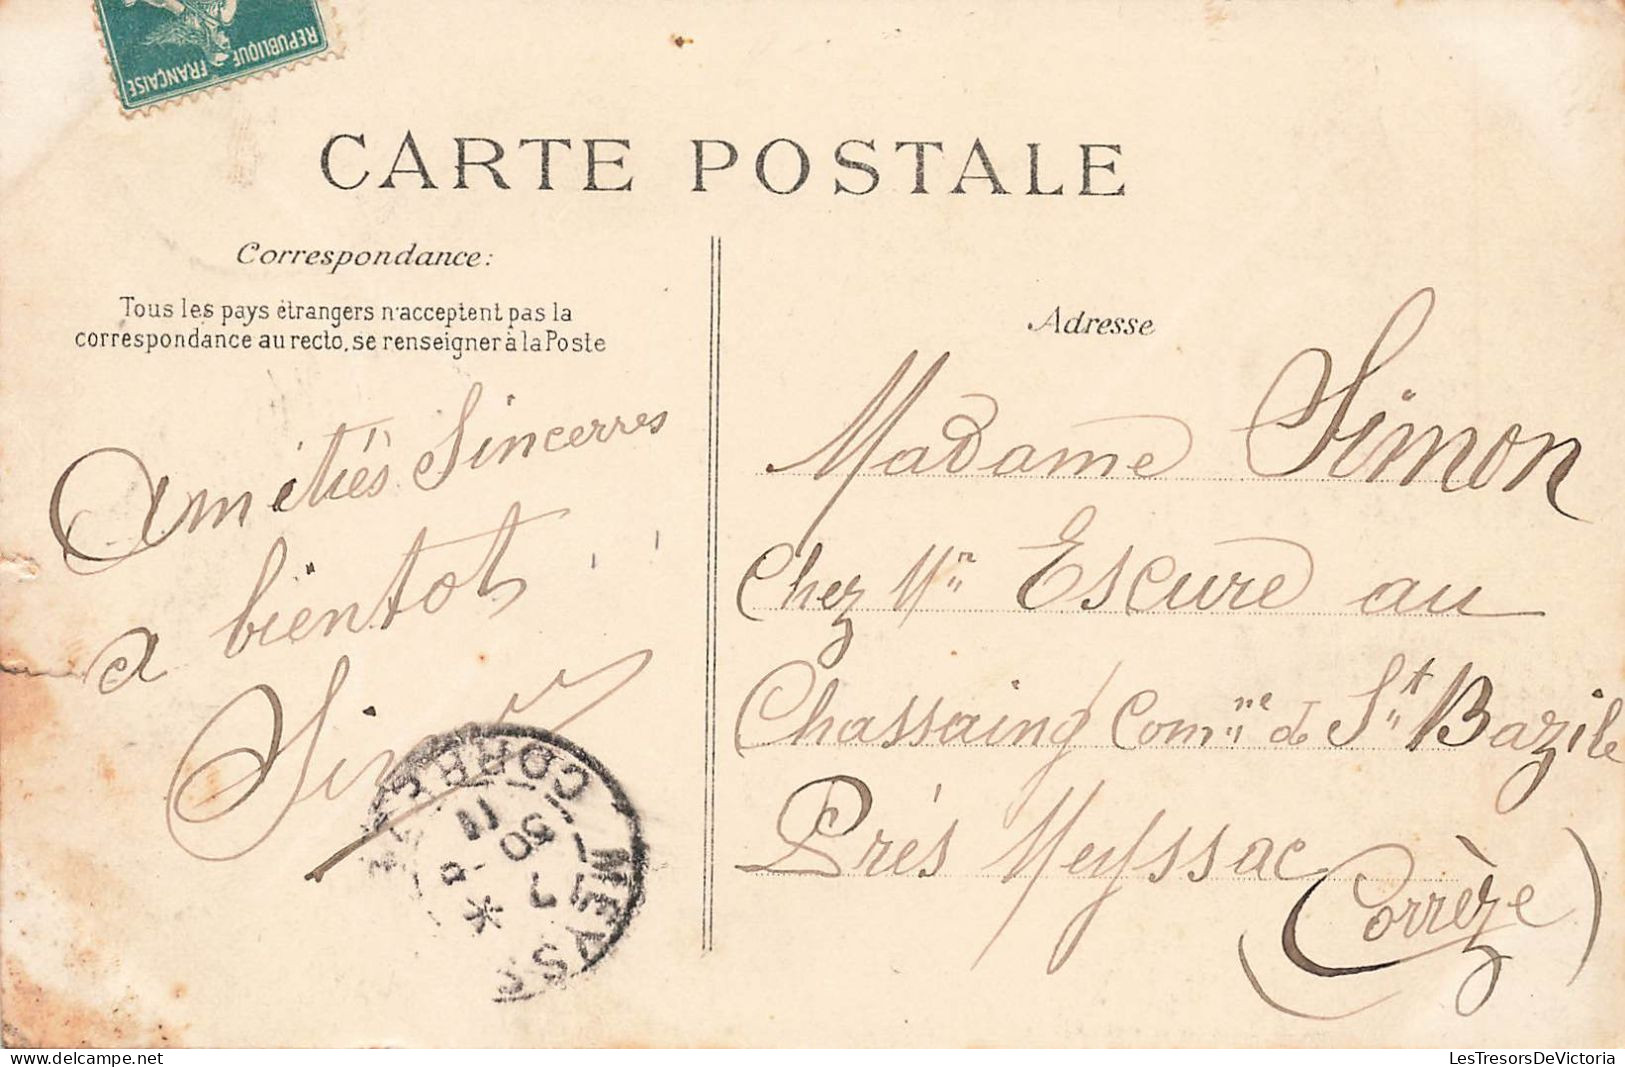 REPUBLIQUE FRANÇAISE
CARTE POSTALE
Correspondance:
Tous les pays étrangers n'acceptent pas la
correspondance au recto, se renseigner à la Poste
Amitiés Sincerres
a bientot
Simon
Adresse
Madame Simon
Chez Mr Escure au
Chassaing Comme de St Bazile
Prés Meyssac
(Corrèze)
MEYSS
CORRÈZE
LesTresorsDeVictoria